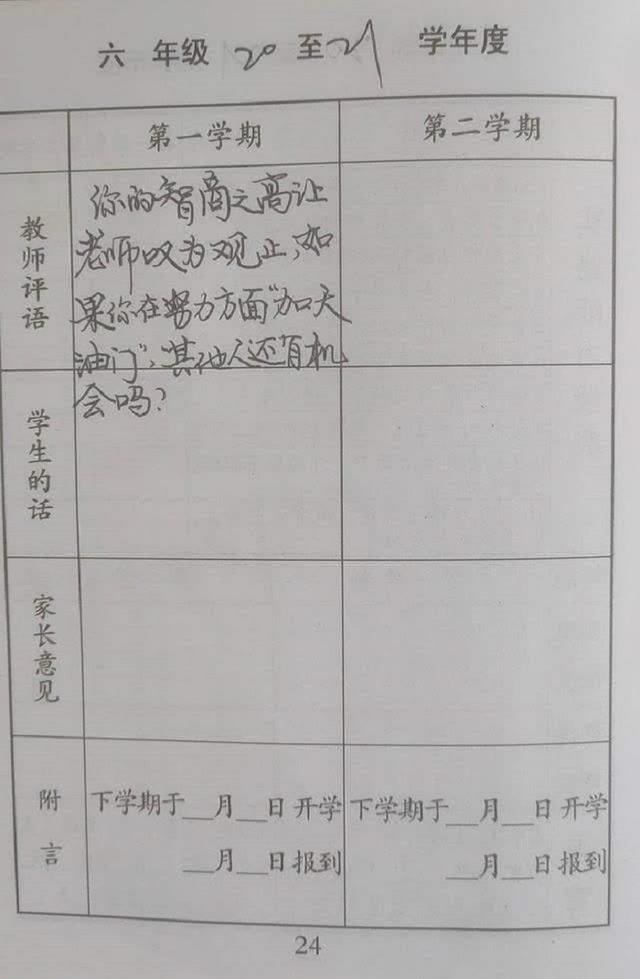 六 年级 20 至 21 学年度
第一学期
第二学期
教师评语
你的智商之高让
老师叹为观止，如
果你在努力方面“加大
油门”，其他人还有机
会吗？
学生的话
家长意见
附言
下学期于__月__日开学
__月__日报到
下学期于__月__日开学
__月__日报到
24